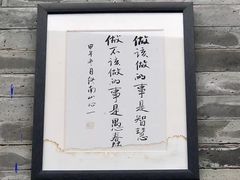 做该做的事是智慧
做不该做的事是愚蠢
甲午年月江南山人心一